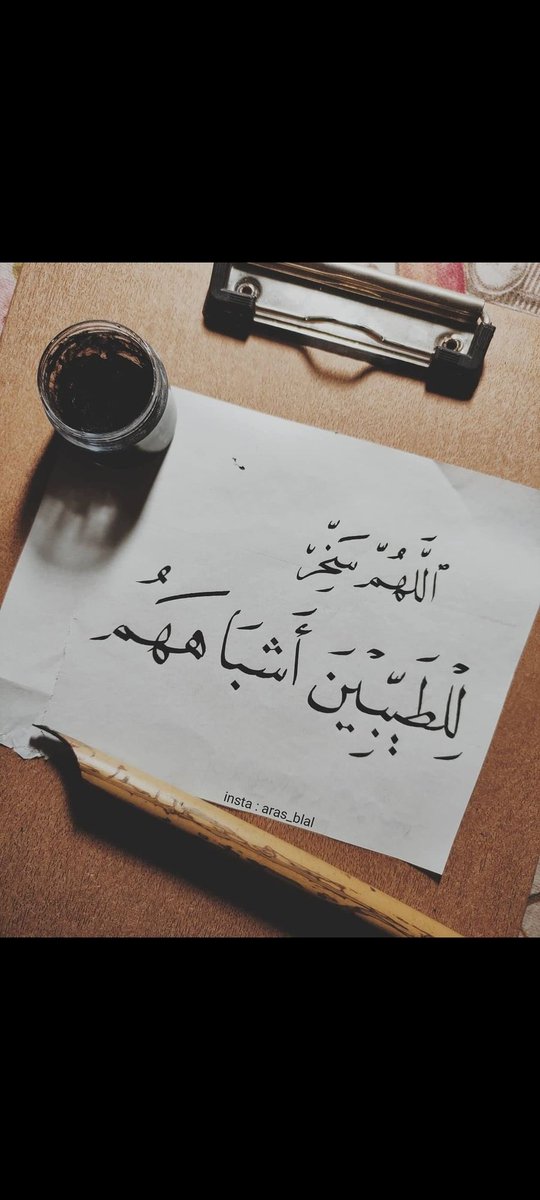 ٱللَّهُمَّ سَخِّرْ
لِلْطَيِّبِيْنَ أَشْبَاهَهُم
insta : aras_blal